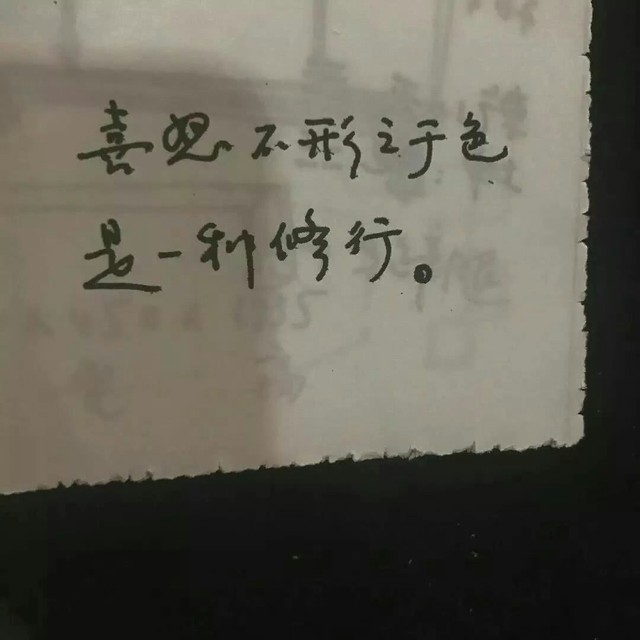 喜怒不形之于色
是一种修行。